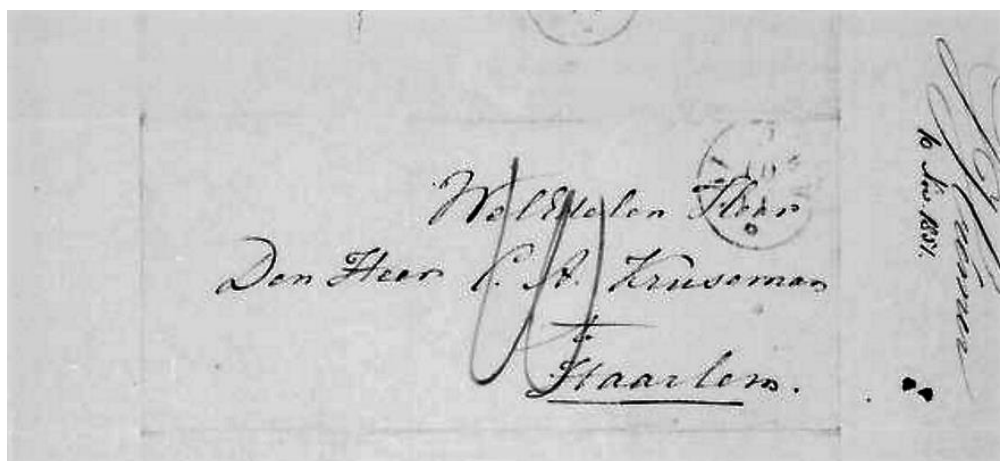 WelEdelen Heer
Den Heer C. A. Kruseman
te
Haarlem.
10 Nov. 1851.